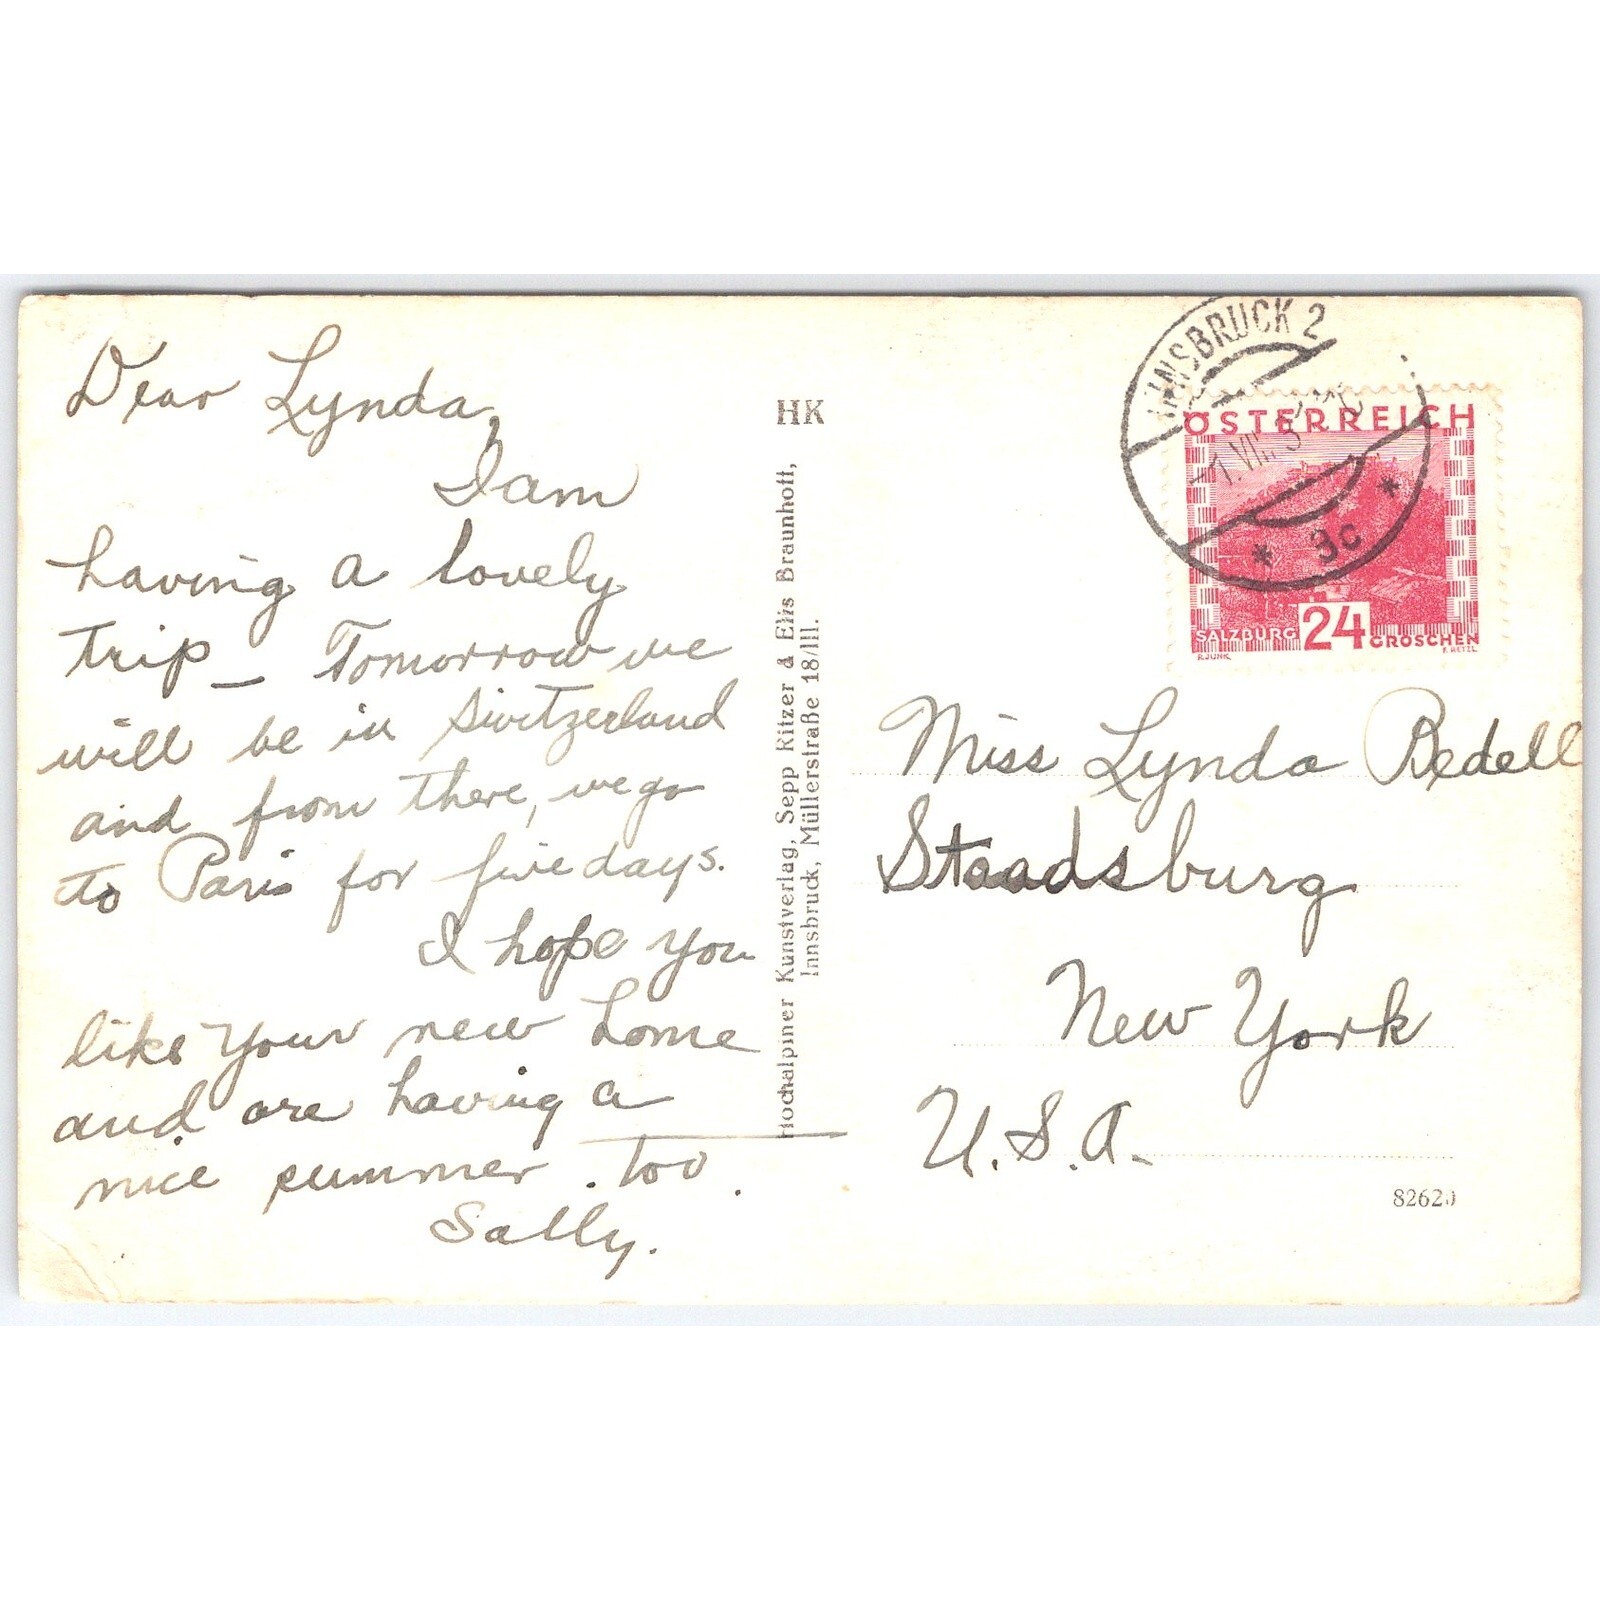 Dear Lynda,
I am
having a lovely
trip — Tomorrow we
will be in Switzerland
and from there, we go
to Paris for five days.
I hope you
like your new home
and are having a
nice summer. too.
Sally.
HK
Hochalpiner Kunstverlag, Sepp Ritzer & Elis Braunhott,
Innsbruck, Müllerstraße 18/III.
INNSBRUCK 2
-1.VIII.3
* 3c *
ÖSTERREICH
SALZBURG 24 GROSCHEN
R.JUNK.
Miss Lynda Bedell
Staadsburg
New York
U.S.A.
82620